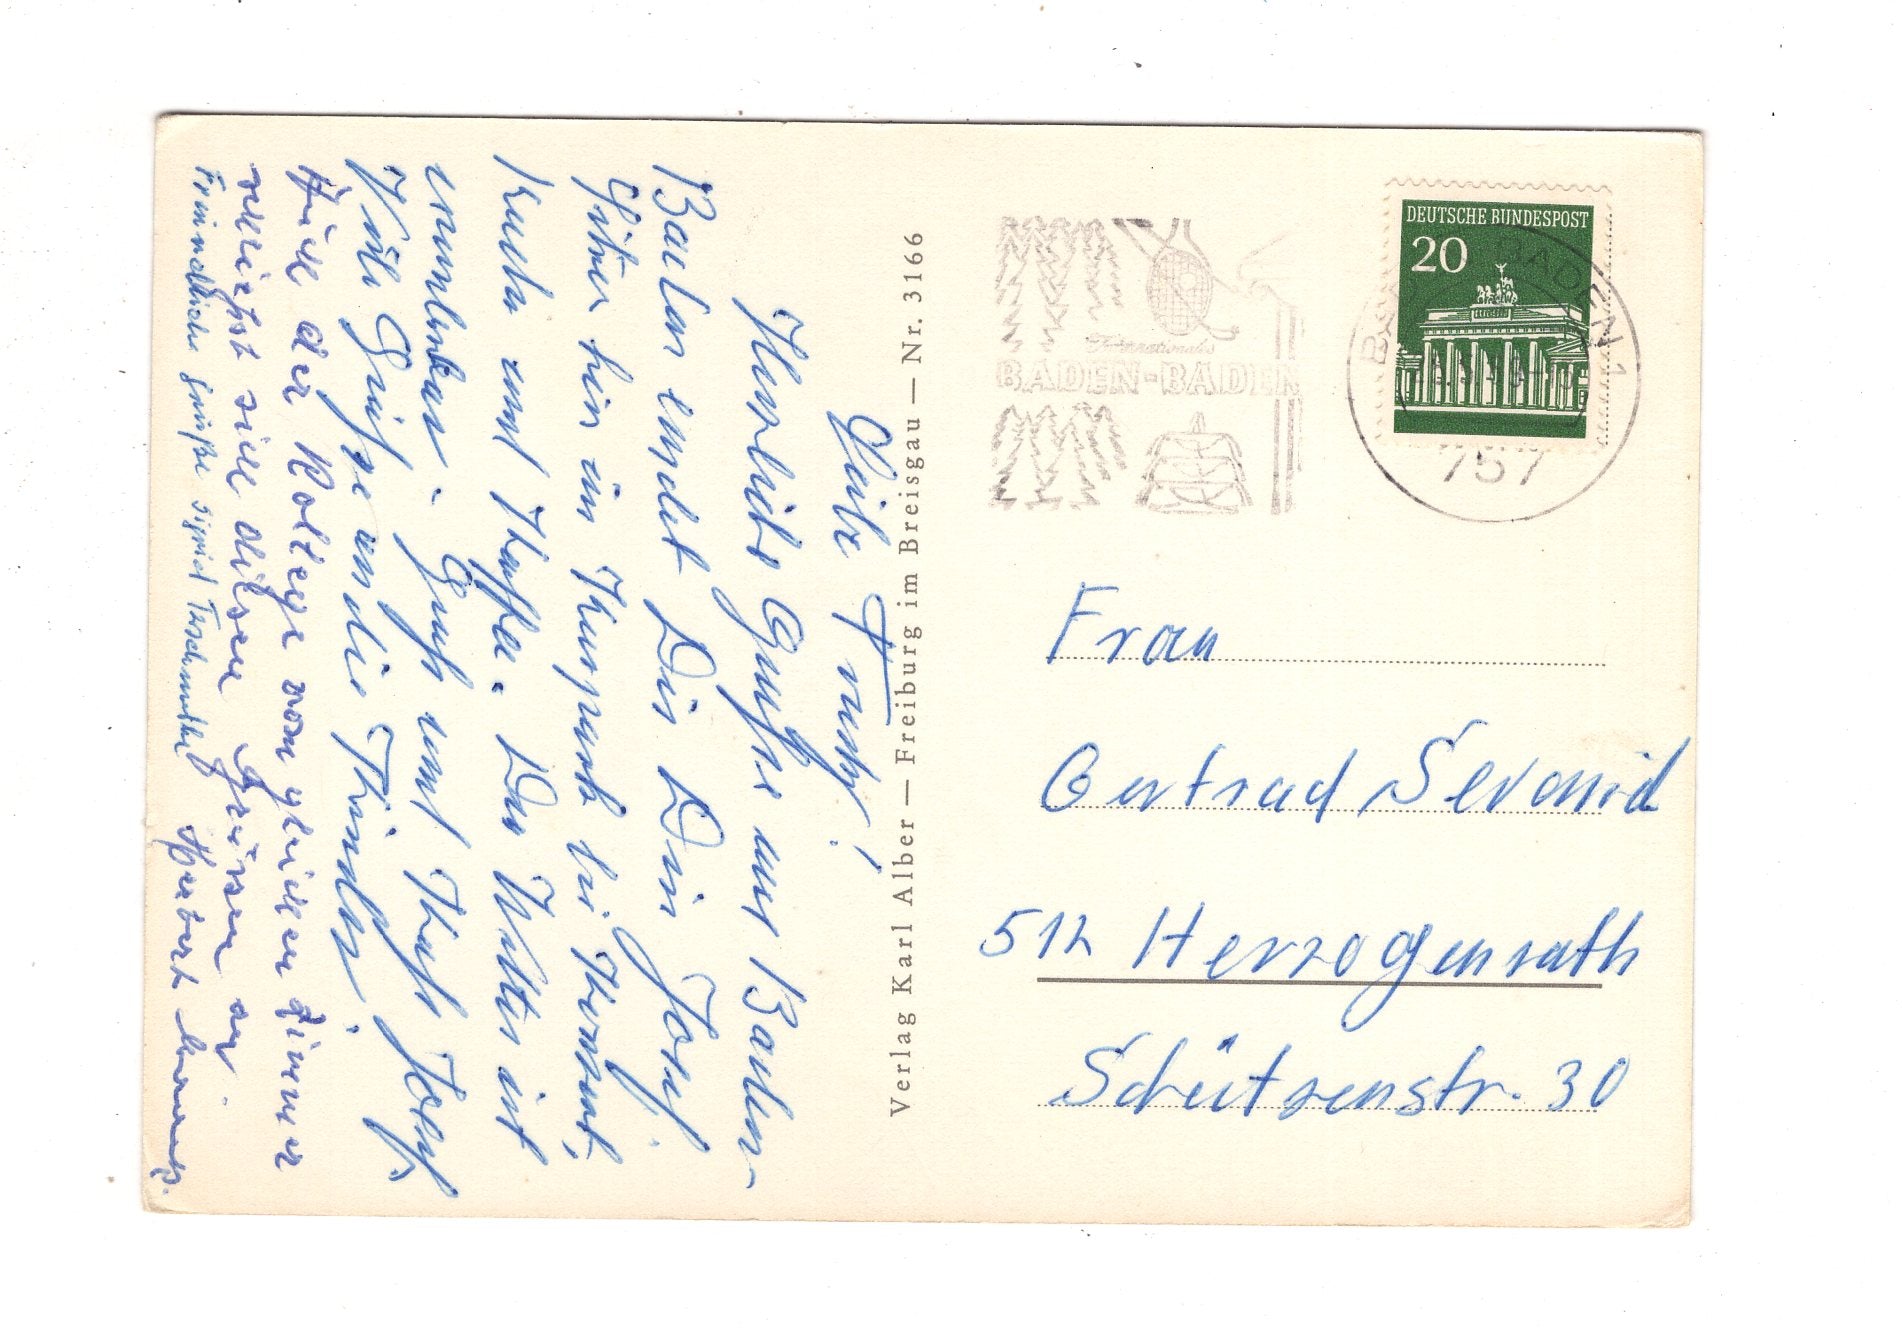 Liebe Trudy!
Herzliche Grüsse aus Baden-
Baden sendet Dir Dein Josef.
Sitze hier im Kurpark bei Konzert,
und Kaffee. Das Wetter ist
wunderbar. Gruß und Kuß Josef.
Viele Grüße an die Kinder.
Auch der Kollege vom gleichen Zimmer
sich diesen Grüssen an.
Freundliche Grüße Sigrid
Herbert
Verlag Karl Alber — Freiburg im Breisgau — Nr. 3166
Internationales
BADEN-BADEN
DEUTSCHE BUNDESPOST
20
BADEN-BADEN 1
757
Frau
Gertrud
512 Herzogenrath
Schützenstr. 30